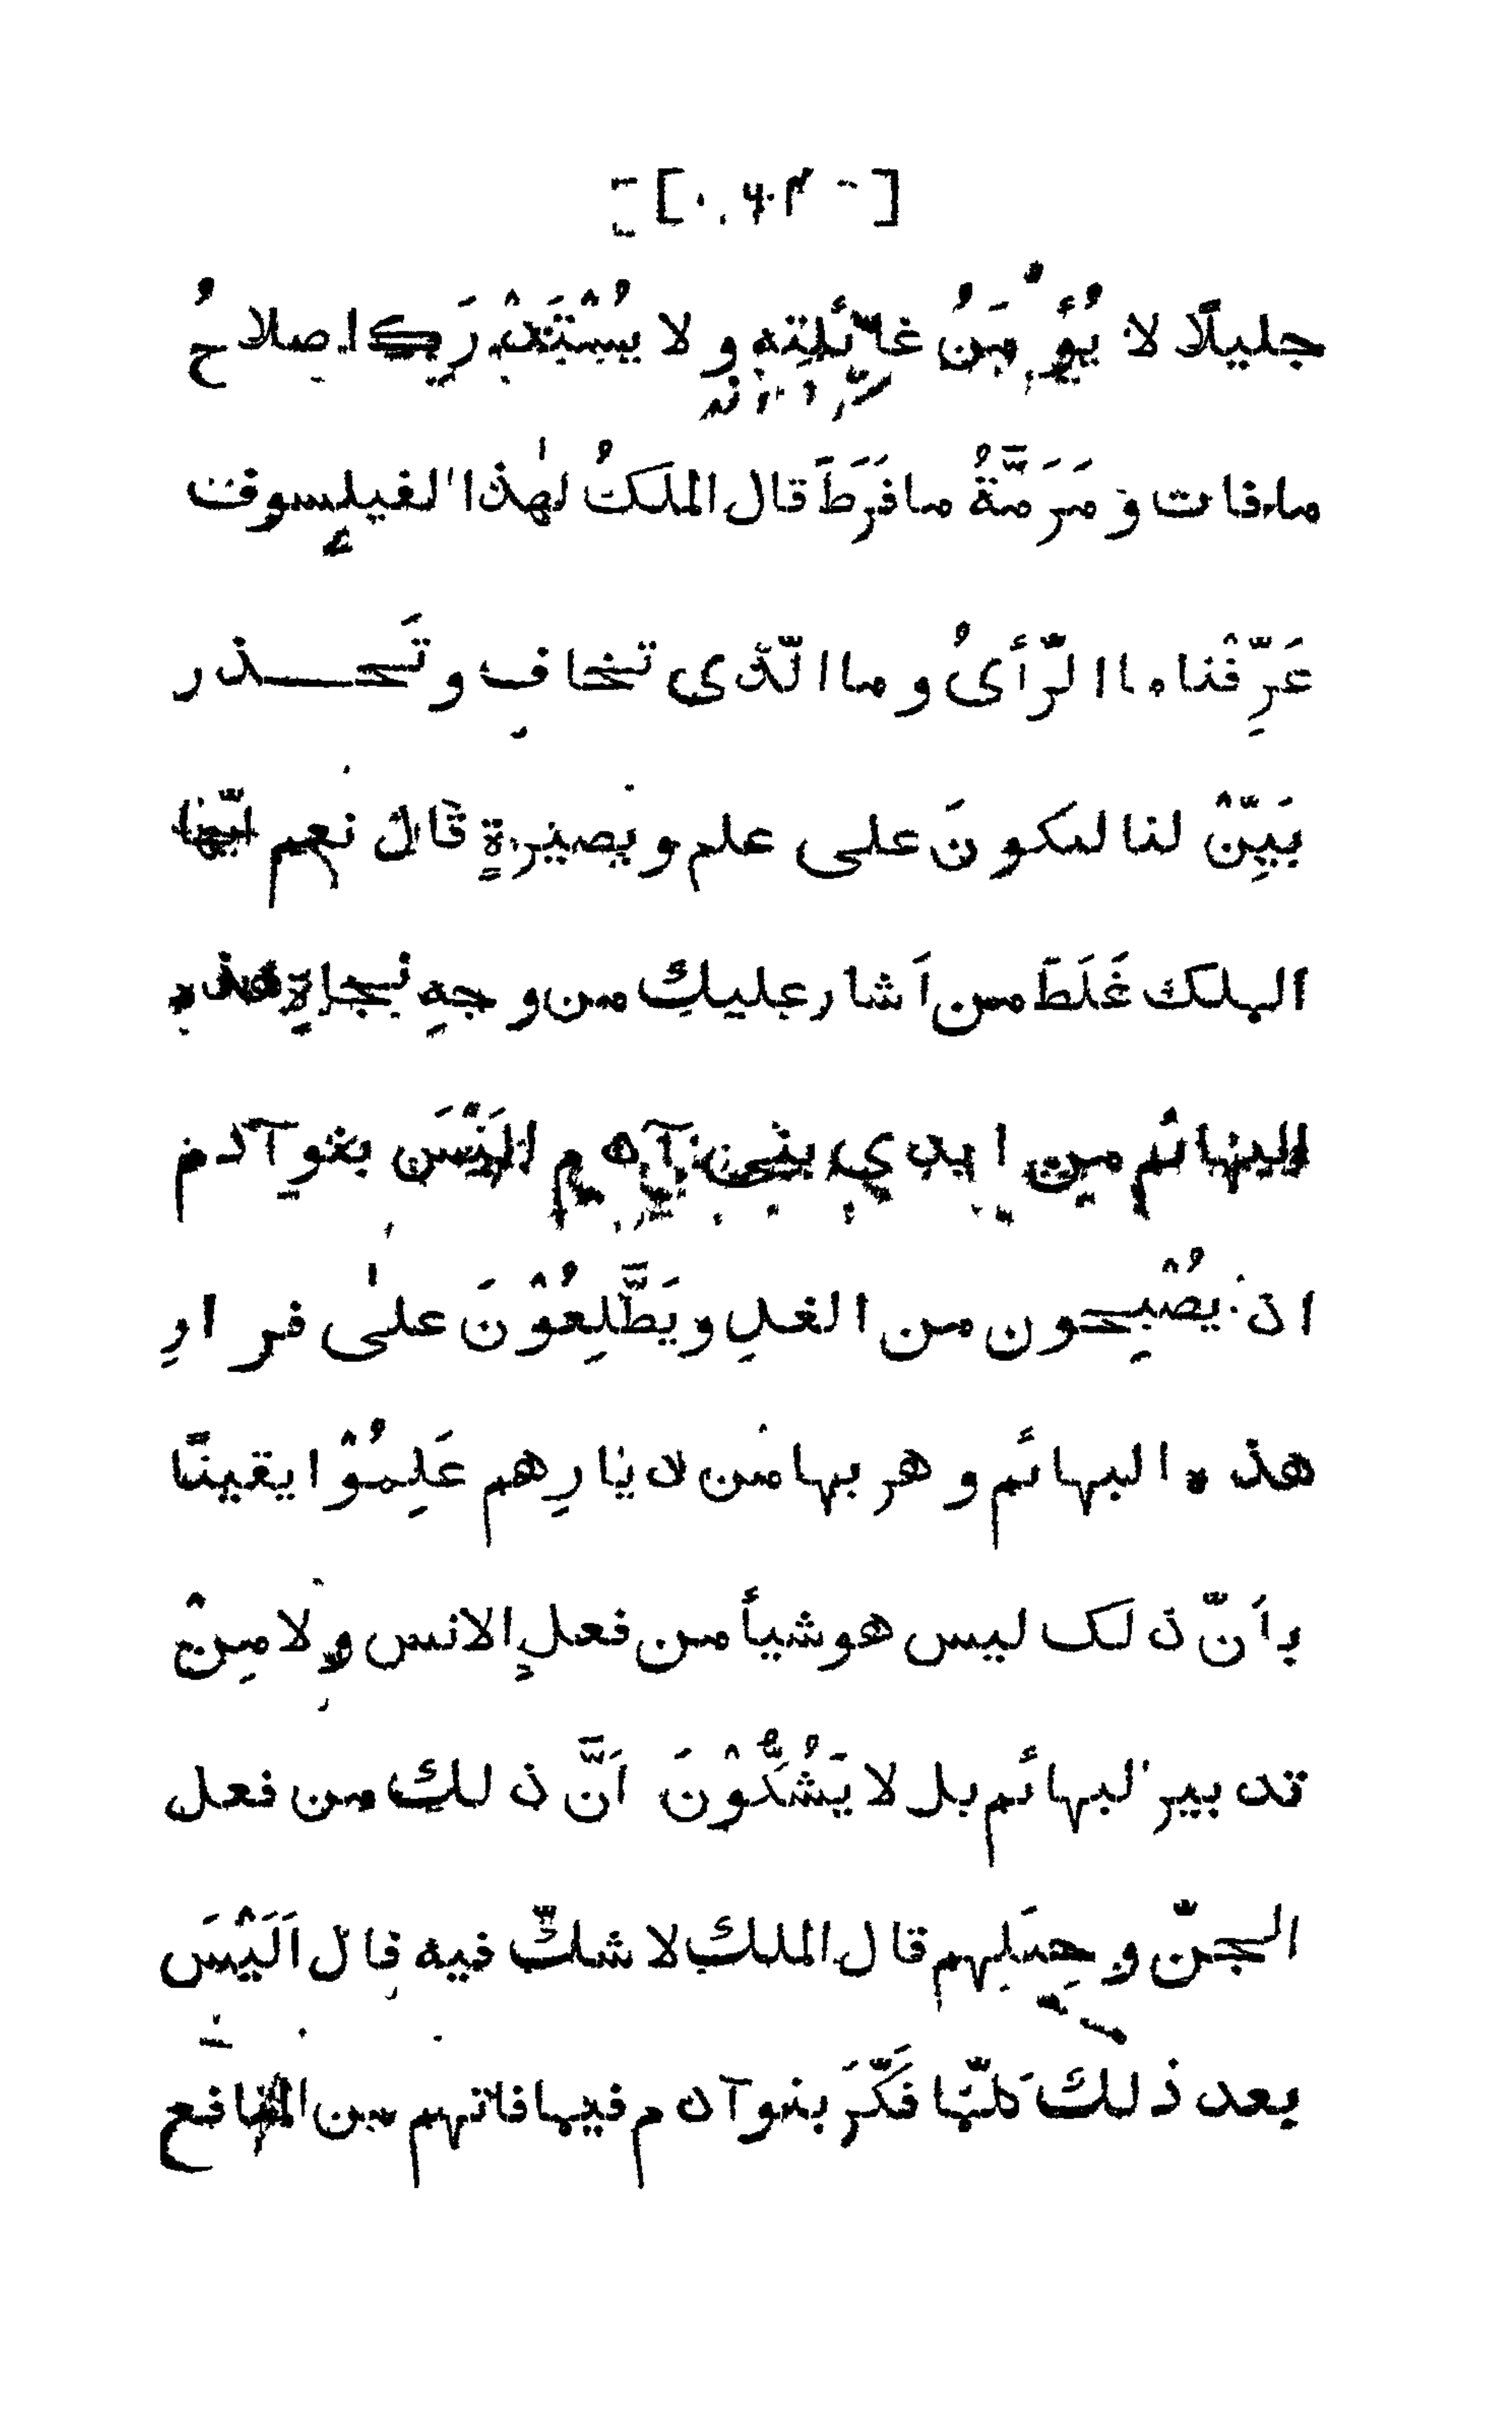 جليلًا لا يُؤْمَنُ غائلته ولا يُسْتَدْرَك اصلاحُ
ما فات و مَرَمَّةُ ما فَرَطَ قال الملكُ لهٰذا الفيلسوف
عَرِّفْنا ما الرّأىُ وما الّذي تخاف وتَحذر
بَيِّنْ لنا لنكونَ على علم وبصيرةٍ قال نعم ايّها
الملك غَلَطَ من اَشار عليك من وجهِ نجاةِ هذه
البهائم من ايدي بني آدم اَلَيْسَ بنو آدم
اذ يُصْبِحون من الغدِ ويَطَّلِعُوْنَ علىٰ فرارِ
هذه البهائم وهربها من ديارِهم عَلِمُوْا يقينًا
باَنّ ذلك ليس هو شيأ من فعلِ الانس ولا مِنْ
تدبير البهائم بل لا يَشُكُّوْنَ اَنَّ ذلك من فعل
الجنّ وحِيَلِهم قال الملك لا شكّ فيه قال اَلَيْسَ
بعد ذلكَ كلّما فَكَّرَ بنو آدم فيما فاتهم من المنافع